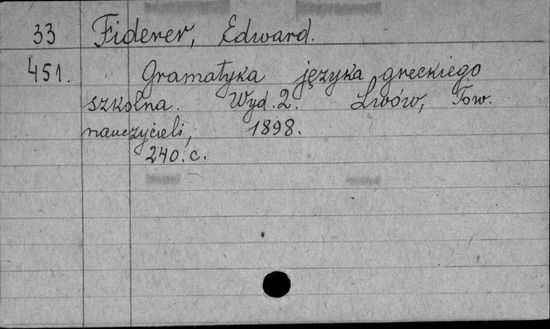 33 Fiderer, Edward.
451. Gramatyka języka greckiego
szkolna. Wyd. 2. Lwów, Tow.
nauczycieli, 1898.
240. c.